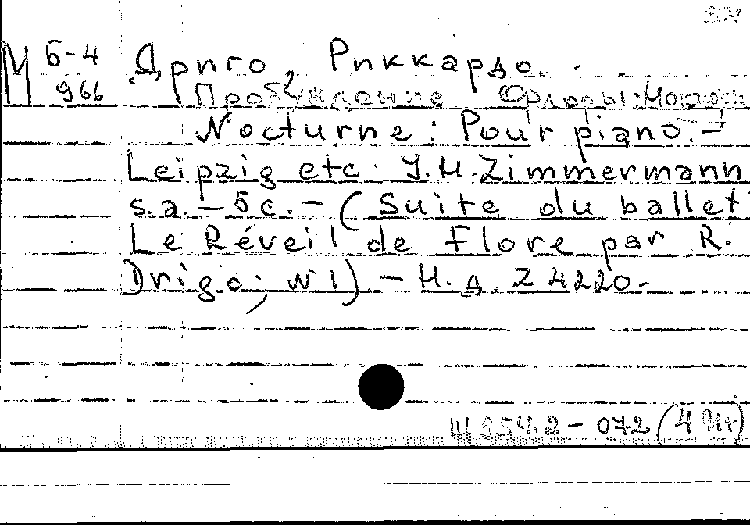 М Б-4
966
Дриго, Риккардо.
Пробуждение Флоры:
Nocturne: Pour piano. –
Leipzig etc. J.H. Zimmermann
s.a. – 5 с. – (Suite du ballet
Le Réveil de Flore par R.
Drigo; N 1) – Н.д. Z 4220.